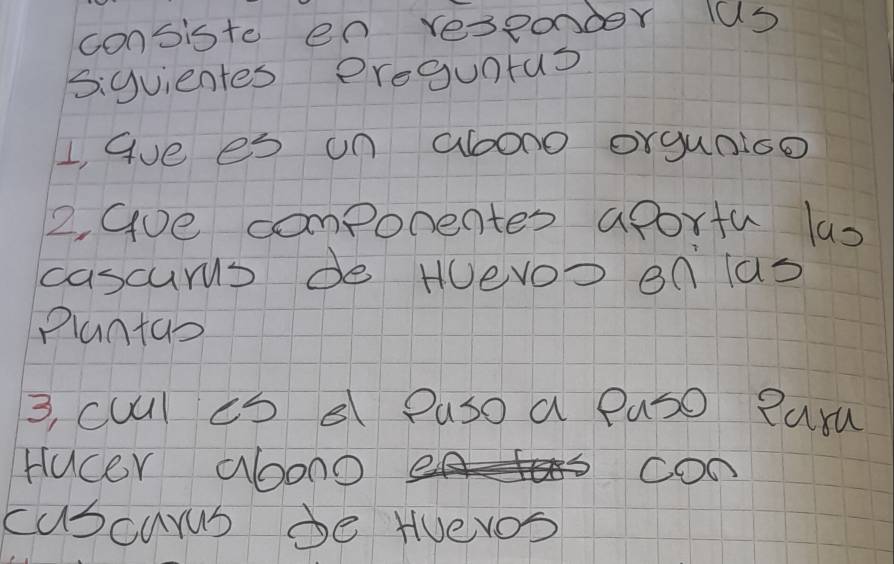 consiste en responder las
siguientes Preguntas
1, que es un abono organico
2, que componentes aporta las
cascaras de Huevos en las
Plantas
3, cual es el Paso a Paso Para
Hacer abono con
cascaras de Huevos